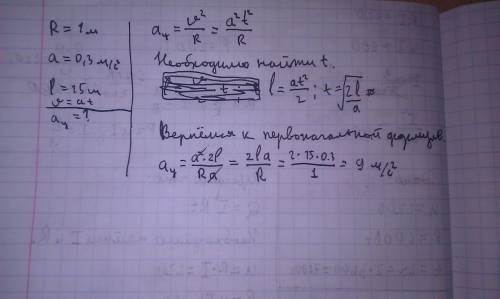 R = 1 м
a = 0,3 м/с²
l = 15 м
v = at
aц = ?
aц = v²/R = a²t²/R
Необходимо найти t.
l = at²/2 ; t = √(2l/a)
Вернёмся к первоначальной формуле
aц = a²·2l/Ra = 2la/R = 2·15·0.3/1 = 9 м/с²